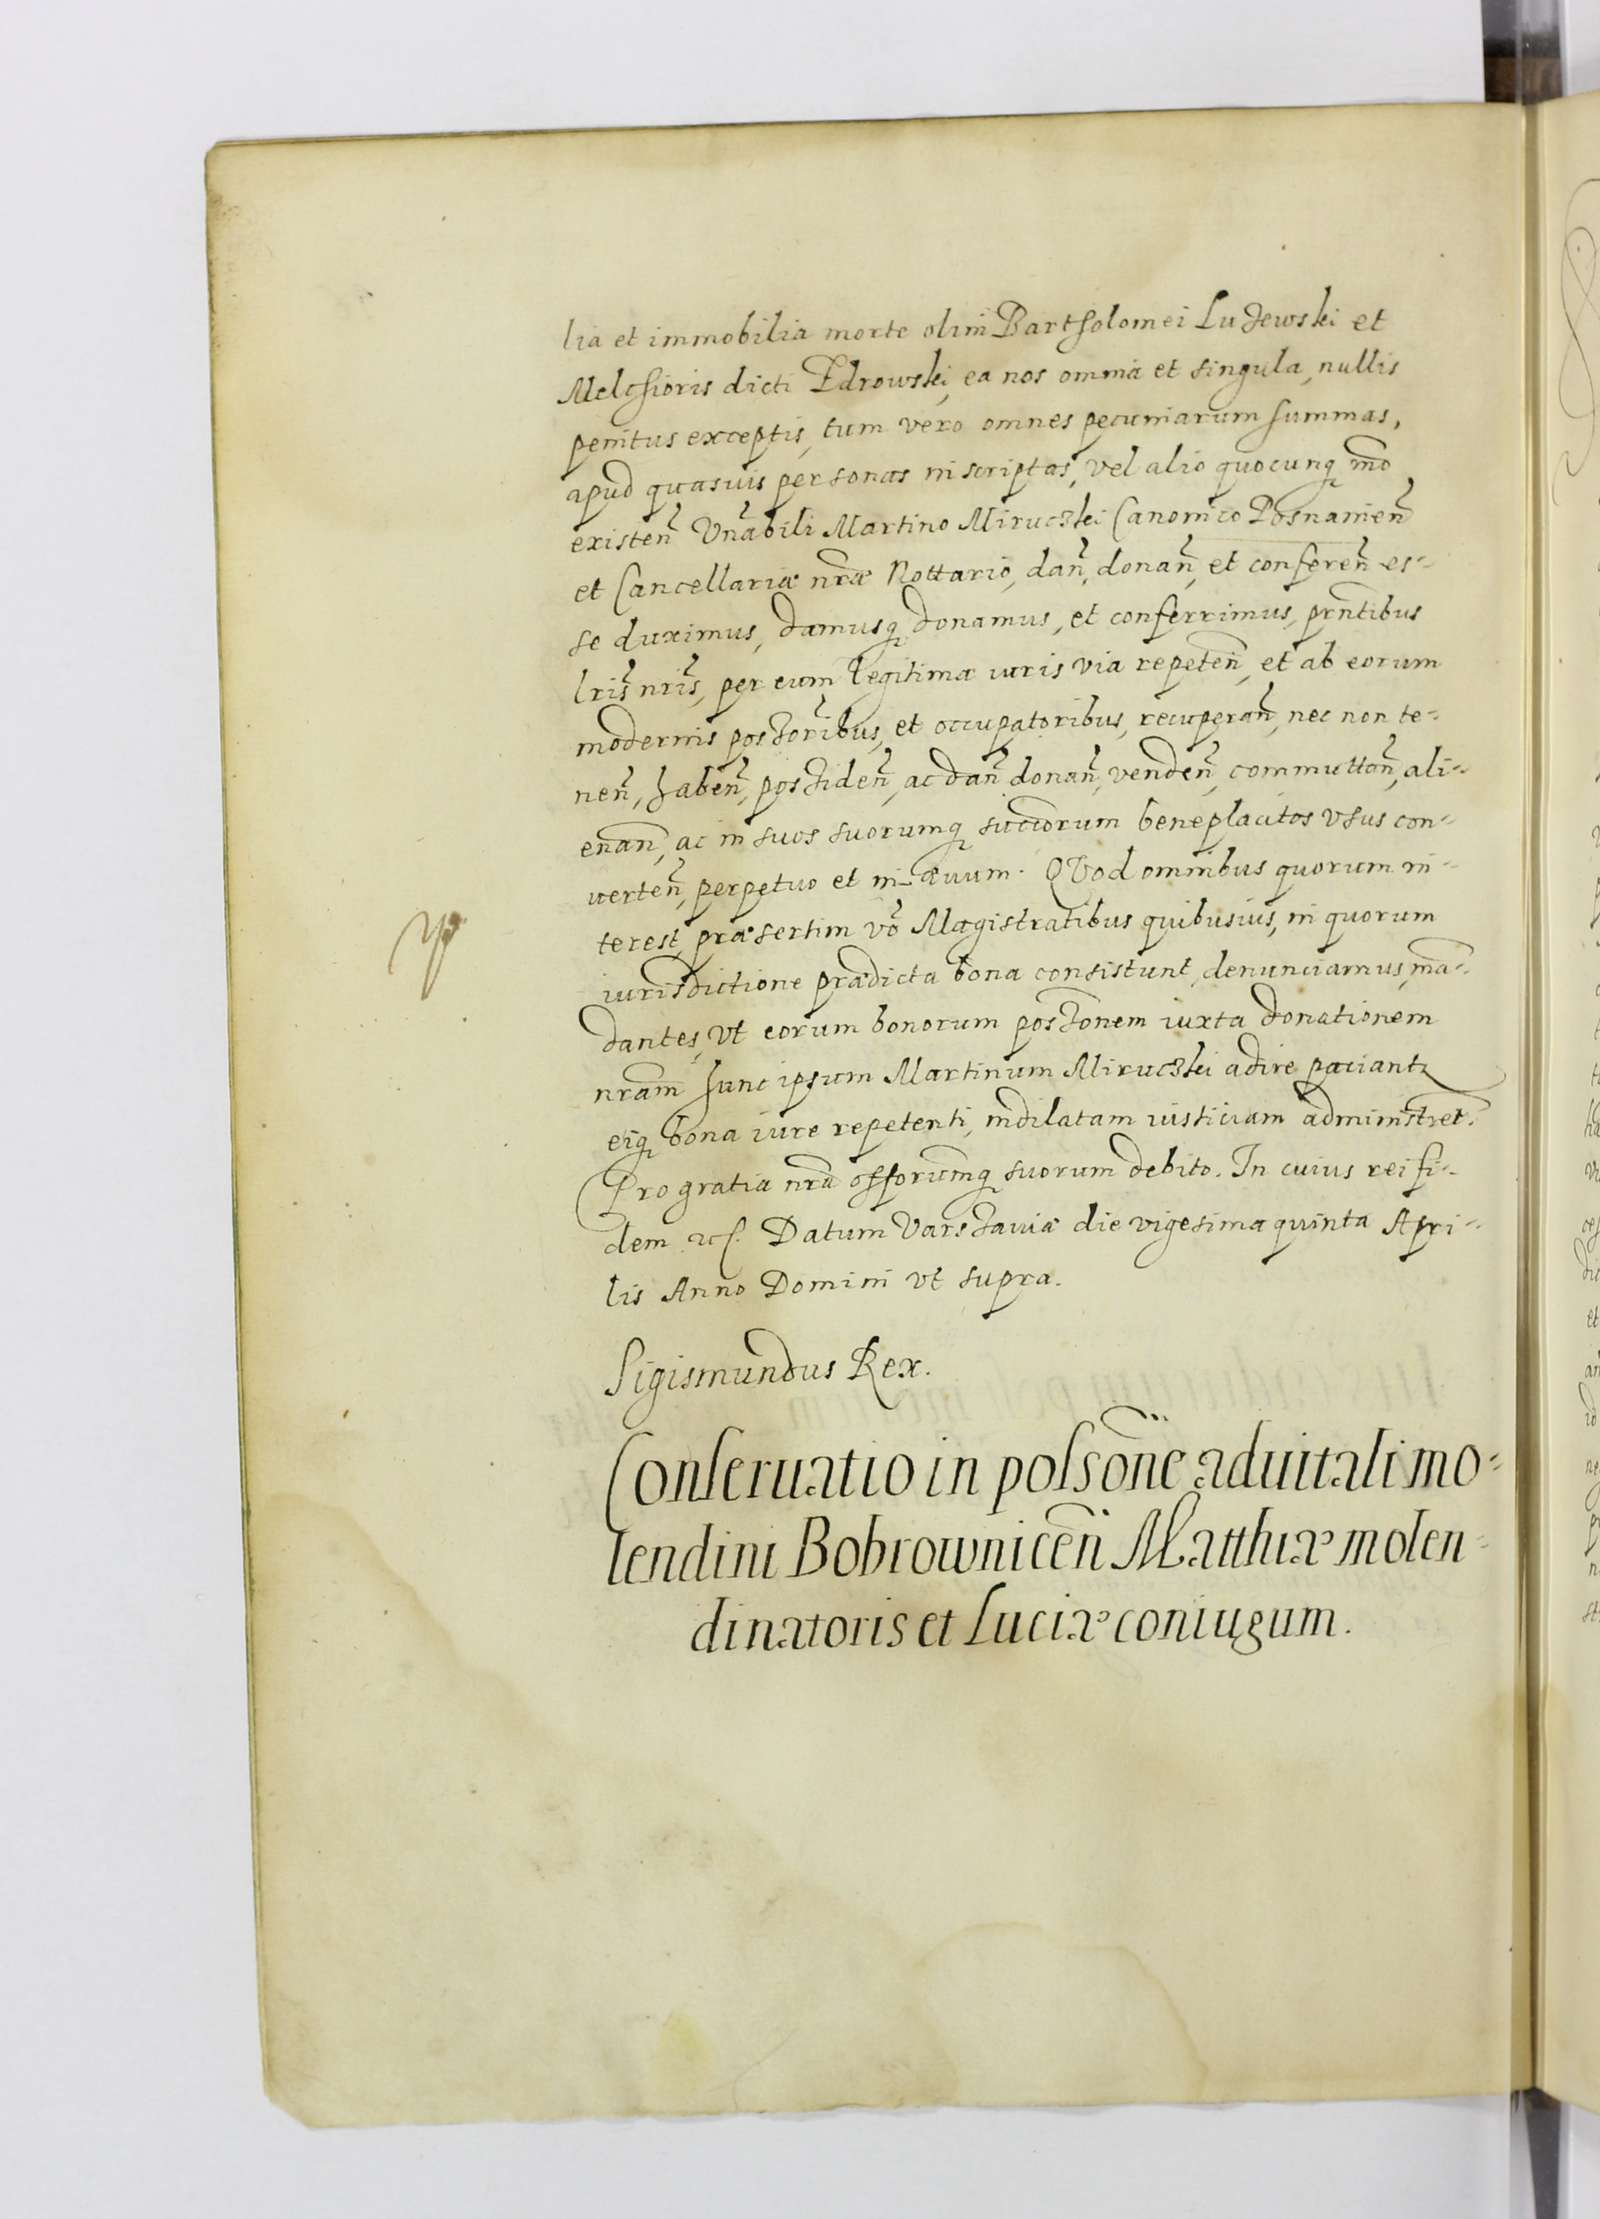 lia et immobilia morte olim Bartholomei Luʒewski et
Melchioris dicti Zdrowski, ea nos omnia et singula, nullis
penitus exceptis, tum vero omnes pecuniarum summas,
apud quasuis personas inscriptas, vel alio quocunq, mō
existen̄ Vn̄abili Martino Miruczki Canonico Posnanien̄
et Cancellariæ nr̄æ Nottario, dan̄, donan̄, et conferen̄ es-
se duximus, damusq, donamus, et conferrimus, prn̄tibus
lris̄ nris̄, per eum legitima iuris via repeten̄, et ab eorum
modernis possoribus, et occupatoribus, recuperan̄, nec non te-
nen̄, haben̄, possiden̄, ac dan̄ donan̄, venden̄, commuttan̄, ali-
enan̄, ac in suos suorumq, succorum beneplacitos vsus con-
uerten̄, perpetuo et in æuum. QVod omnibus quorum in-
terest, præsertim vō Magistratibus quibusuis, in quorum
iurisdictione prædicta bona consistunt, denunciamus, mā-
dantes, vt eorum bonorum possonem iuxta donationem
nram̄ hunc ipsum Martinum Miruczki adire paciantr
eiq, bona iure repetenti, indilatam iusticiam administret.
Pro gratia nrā offorumq, suorum debito. In cuius rei fi-
dem etc. Datum Varssauiæ die vigesima quinta Apri-
lis Anno Domini vt supra.
Sigismundus Rex.
Conseruatio in possōne aduitali mo-
lendini Bobrownicen̄ Matthiæ molen-
dinatoris et Luciæ coniugum.